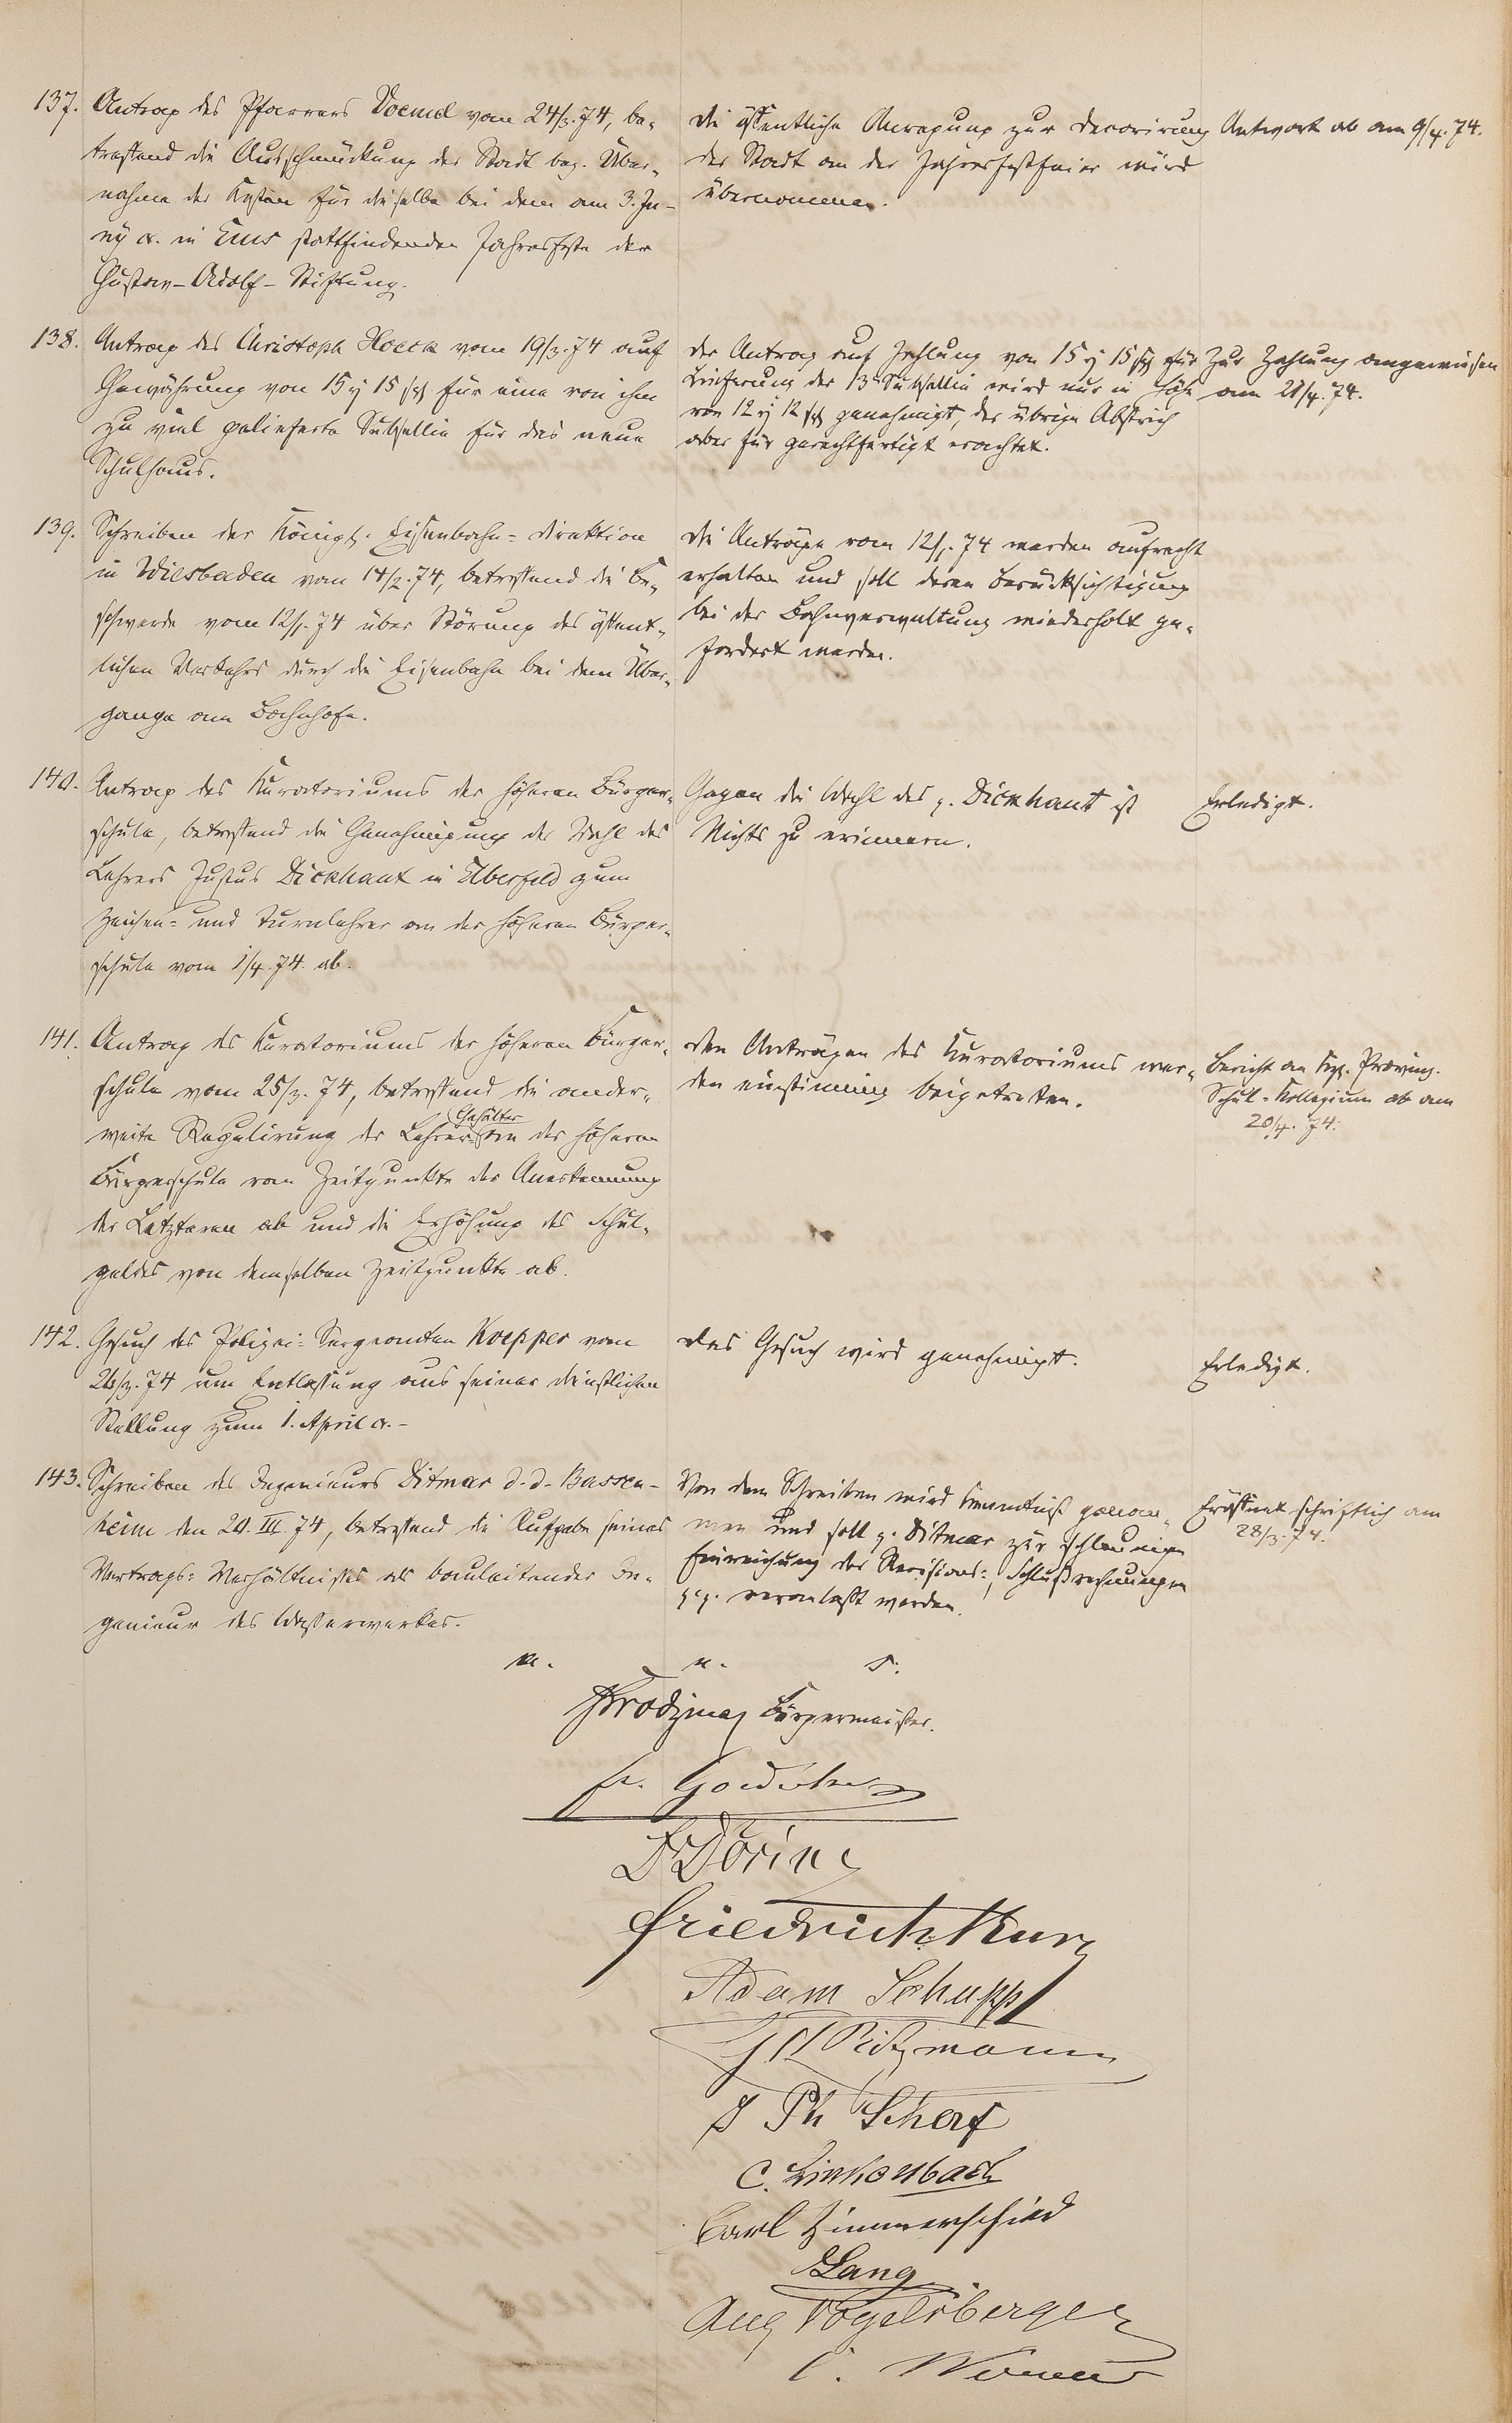 137. Antrag des Pfarrers Voemel vom 24/3. 74, be-
treffend die Ausschmückung der Stadt bez. Über-
nahme der Kosten für dieselbe bei dem am 3. Ju-
ny cr. in Ems stattfindenden Jahresfeste der
Gustav-Adolf-Stiftung.
Die öffentliche Anregung zur Decorirung
der Stadt an der Jahresfestfeier wird
übernommen.
Antwort ab am 9/4. 74.
138. Antrag des Christoph Hoeck vom 19/3. 74 auf
Gewährung von 15 15 für eine von ihm
zu viel gelieferte Subsellie für das neue
Schulhaus.
Der Antrag auf Zahlung von 15 15 für
Lieferung der 13. Subsellie wird nur in Höhe
von 12 12 genehmigt, der übrige Abstrich
aber für gerechtfertigt erachtet.
Zur Zahlung angewiesen
am 21/4. 74.
139. Schreiben der Königl. Eisenbahn-Direktion
in Wiesbaden vom 14/2. 74, betreffend die Be-
schwerde vom 12/1. 74 über Störung des öffent-
lichen Verkehrs durch die Eisenbahn bei dem Über-
gange am Bahnhofe.
Die Anträge vom 12/1. 74 werden aufrecht
erhalten und soll deren Berücksichtigung
bei der Bahnverwaltung wiederholt ge-
fordert werden.
140. Antrag des Kuratoriums der höheren Bürger-
schule, betreffend die Genehmigung der Wahl des
Lehrers Justus Dickhaut in Elberfeld zum
Zeichen- und Turnlehrer an der höheren Bürger-
schule vom 1/4. 74. ab.
Gegen die Wahl des p. Dickhaut ist
Nichts zu erinnern.
Erledigt.
141. Antrag des Kuratoriums der höheren Bürger-
schule vom 25/3. 74, betreffend die ander-
weite Regulirung der Lehrer-Gehälter an der höheren
Bürgerschule vom Zeitpunkte der Anerkennung
der Letzteren ab und die Erhöhung des Schul-
geldes von demselben Zeitpunkte ab.
Den Anträgen des Kuratoriums wer-
den einstimmig beigetreten.
Bericht an Kgl. Provinz.
Schul-Kollegium ab am
20/4. 74.
142. Gesuch des Polizei-Sergeanten Koepper vom
26/3. 74 um Entlassung aus seiner dienstlichen
Stellung zum 1. April cr. -
Das Gesuch wird genehmigt.
Erledigt.
143. Schreiben des Ingenieurs Ditmar d. d. Bassen-
heim den 20. III. 74, betreffend die Aufgabe seines
Vertrags-Verhältnisses als bauleitender In-
genieur des Wasserwerkes.
Von dem Schreiben wird Kenntniß genom-
men und soll p. Ditmar zur schleunigen
Einreichung der Revisions-, Schlußrechnungen
pp. veranlaßt werden.
Eröffnet schriftlich am
28/3. 74.
w. u. s.
Bürgermeister.
Dr Döring
Friedrich Kurz
Adam Schupp
J Ph Scherf
C. Linkenbach
Carl Zimmerschied
Lang
Aug Vogelsberger
C. Werner